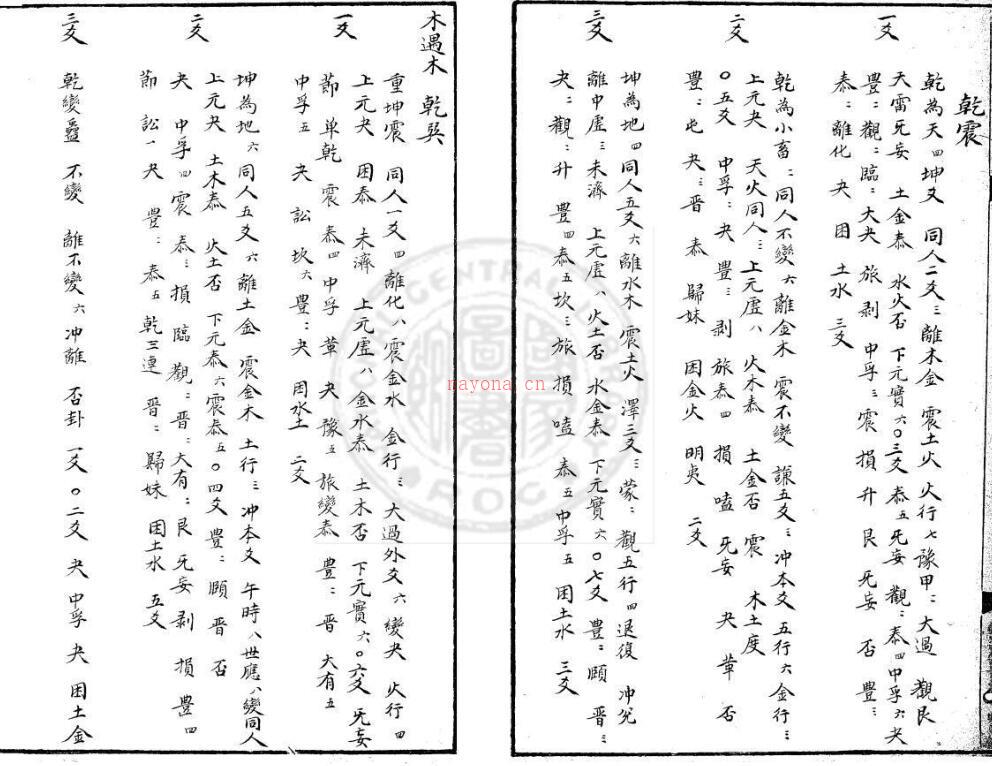 乾震
一爻
乾為天 四坤爻 同人二爻三離木金 震土火 火行七豫甲二大過 觀艮
天雷旡妄 土金泰 水火否 下元實六〇三爻泰五旡妄 觀二泰四中孚六夬
豐二觀二臨二大夬 旅剥 中孚三震 損 升 艮 旡妄 否 豐三
泰二離化 夬 困 土水 三爻
二爻
乾為小畜二同人不變六離金木 震不變 謙五爻三冲本爻 五行六金行三
上元夬 天火同人三上元虛八 火木泰 土金否 震 木土度
〇五爻 中孚二夬 豐三剥 旅泰四 損 嗑 旡妄 夬 革 否
豐二屯 夬三晋 泰 歸妹 困金火 明夷 二爻
三爻
坤為地四同人五爻六離水木 震土火 澤三爻三蒙二觀五行四退復 冲兌
離中虛三未濟 上元虛八火土否 水金泰 下元實六〇七爻 豐二頤 晋三
夬二觀二升 豐四泰五坎三旅 損 嗑 泰五中孚五 困土水 三爻
木遇木 乾巽
一爻
重坤震 同人一爻四離化八震金水 金行三大過外爻六變夬 火行四
上元夬 困泰 未濟 上元虛八金水泰 土木否 下元實六〇六爻 旡妄
節 单乾 震 泰四中孚 革 夬 豫五旅變泰 豐二晋 大有五
中孚五 夬 訟 坎六豐二夬 困水土 二爻
二爻
坤為地六同人五爻六離土金 震金木 土行三冲本爻 午時八世應八變同人
上元夬 土木泰 火土否 下元泰六震泰五〇四爻 豐二頤 晋 否
夬 中孚四震 泰三損 臨 觀三晋二大有二艮 旡妄 剥 損 豐四
節 訟一夬 豐二泰五乾三連 晋二歸妹 困土水 五爻
三爻
乾變蠱 不變 離不變六冲離 否卦 一爻〇二爻 夬 中孚 夬 困土金
nayona.cn